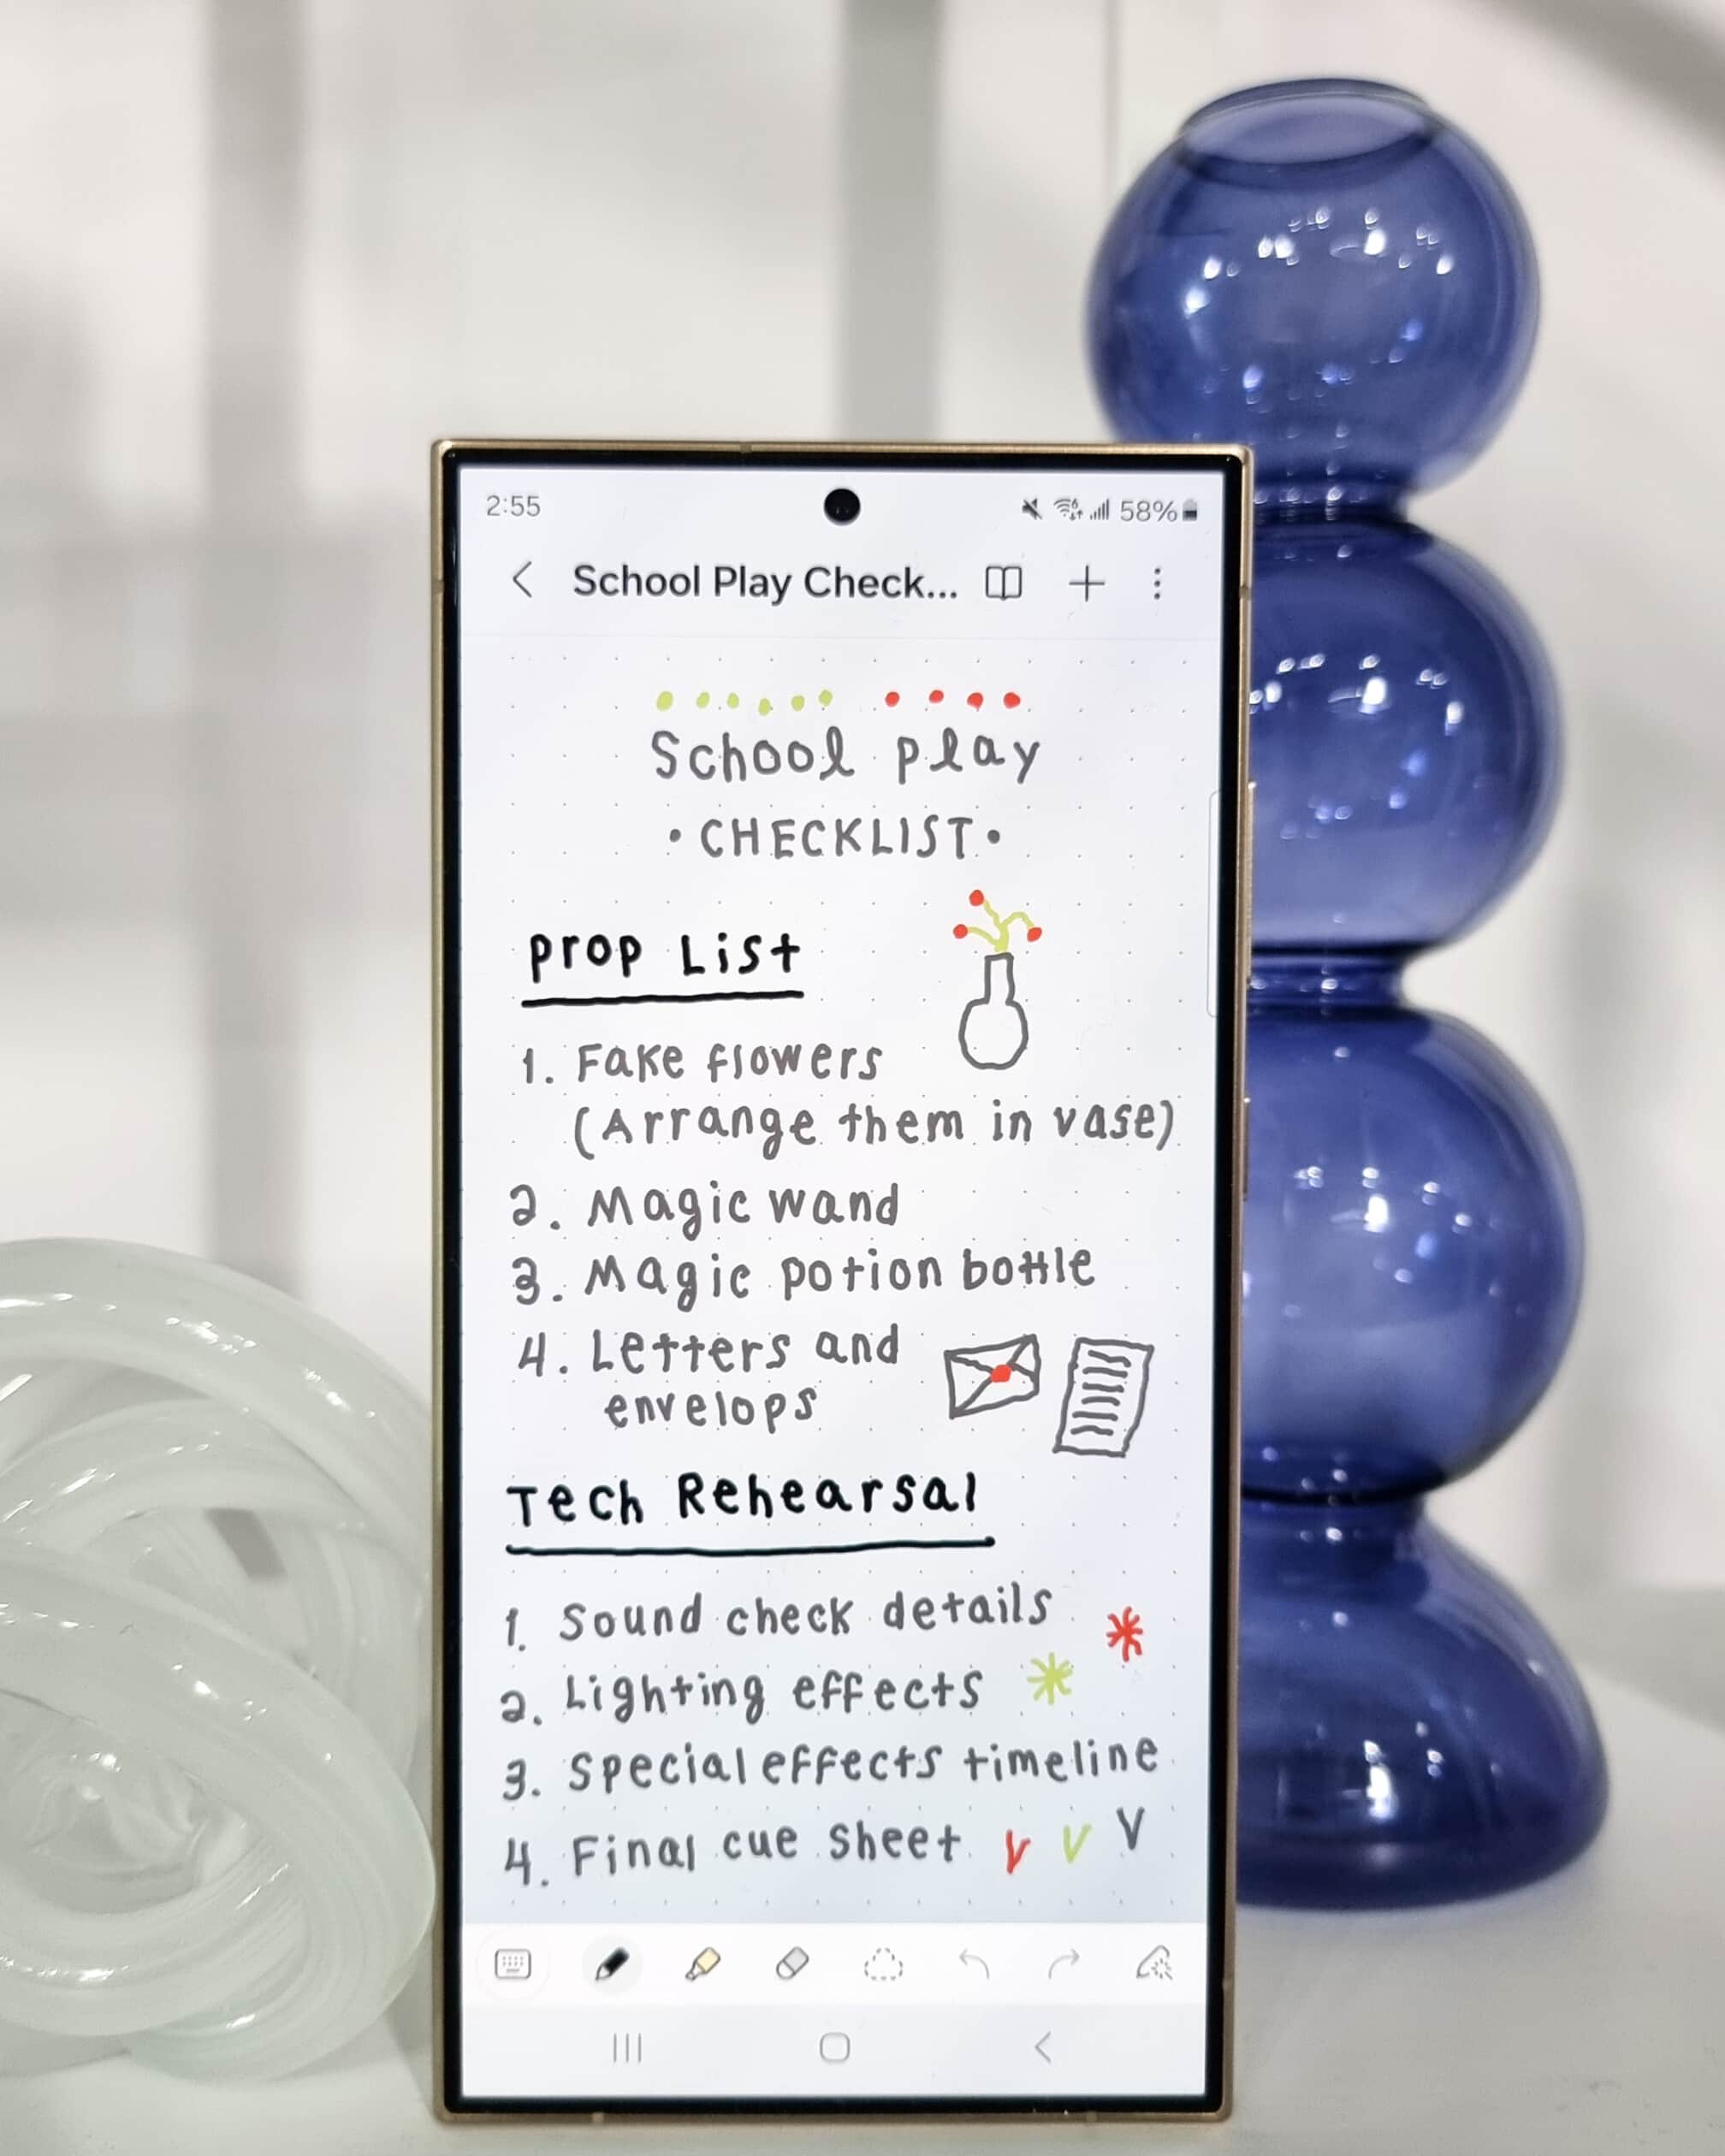 2:55 58%
School Play Check...
School play
• CHECKLIST •
Prop List
1. Fake flowers
(Arrange them in vase)
2. Magic wand
3. Magic potion bottle
4. Letters and
envelops
Tech Rehearsal
1. Sound check details
2. Lighting effects
3. Special effects timeline
4. Final cue sheet